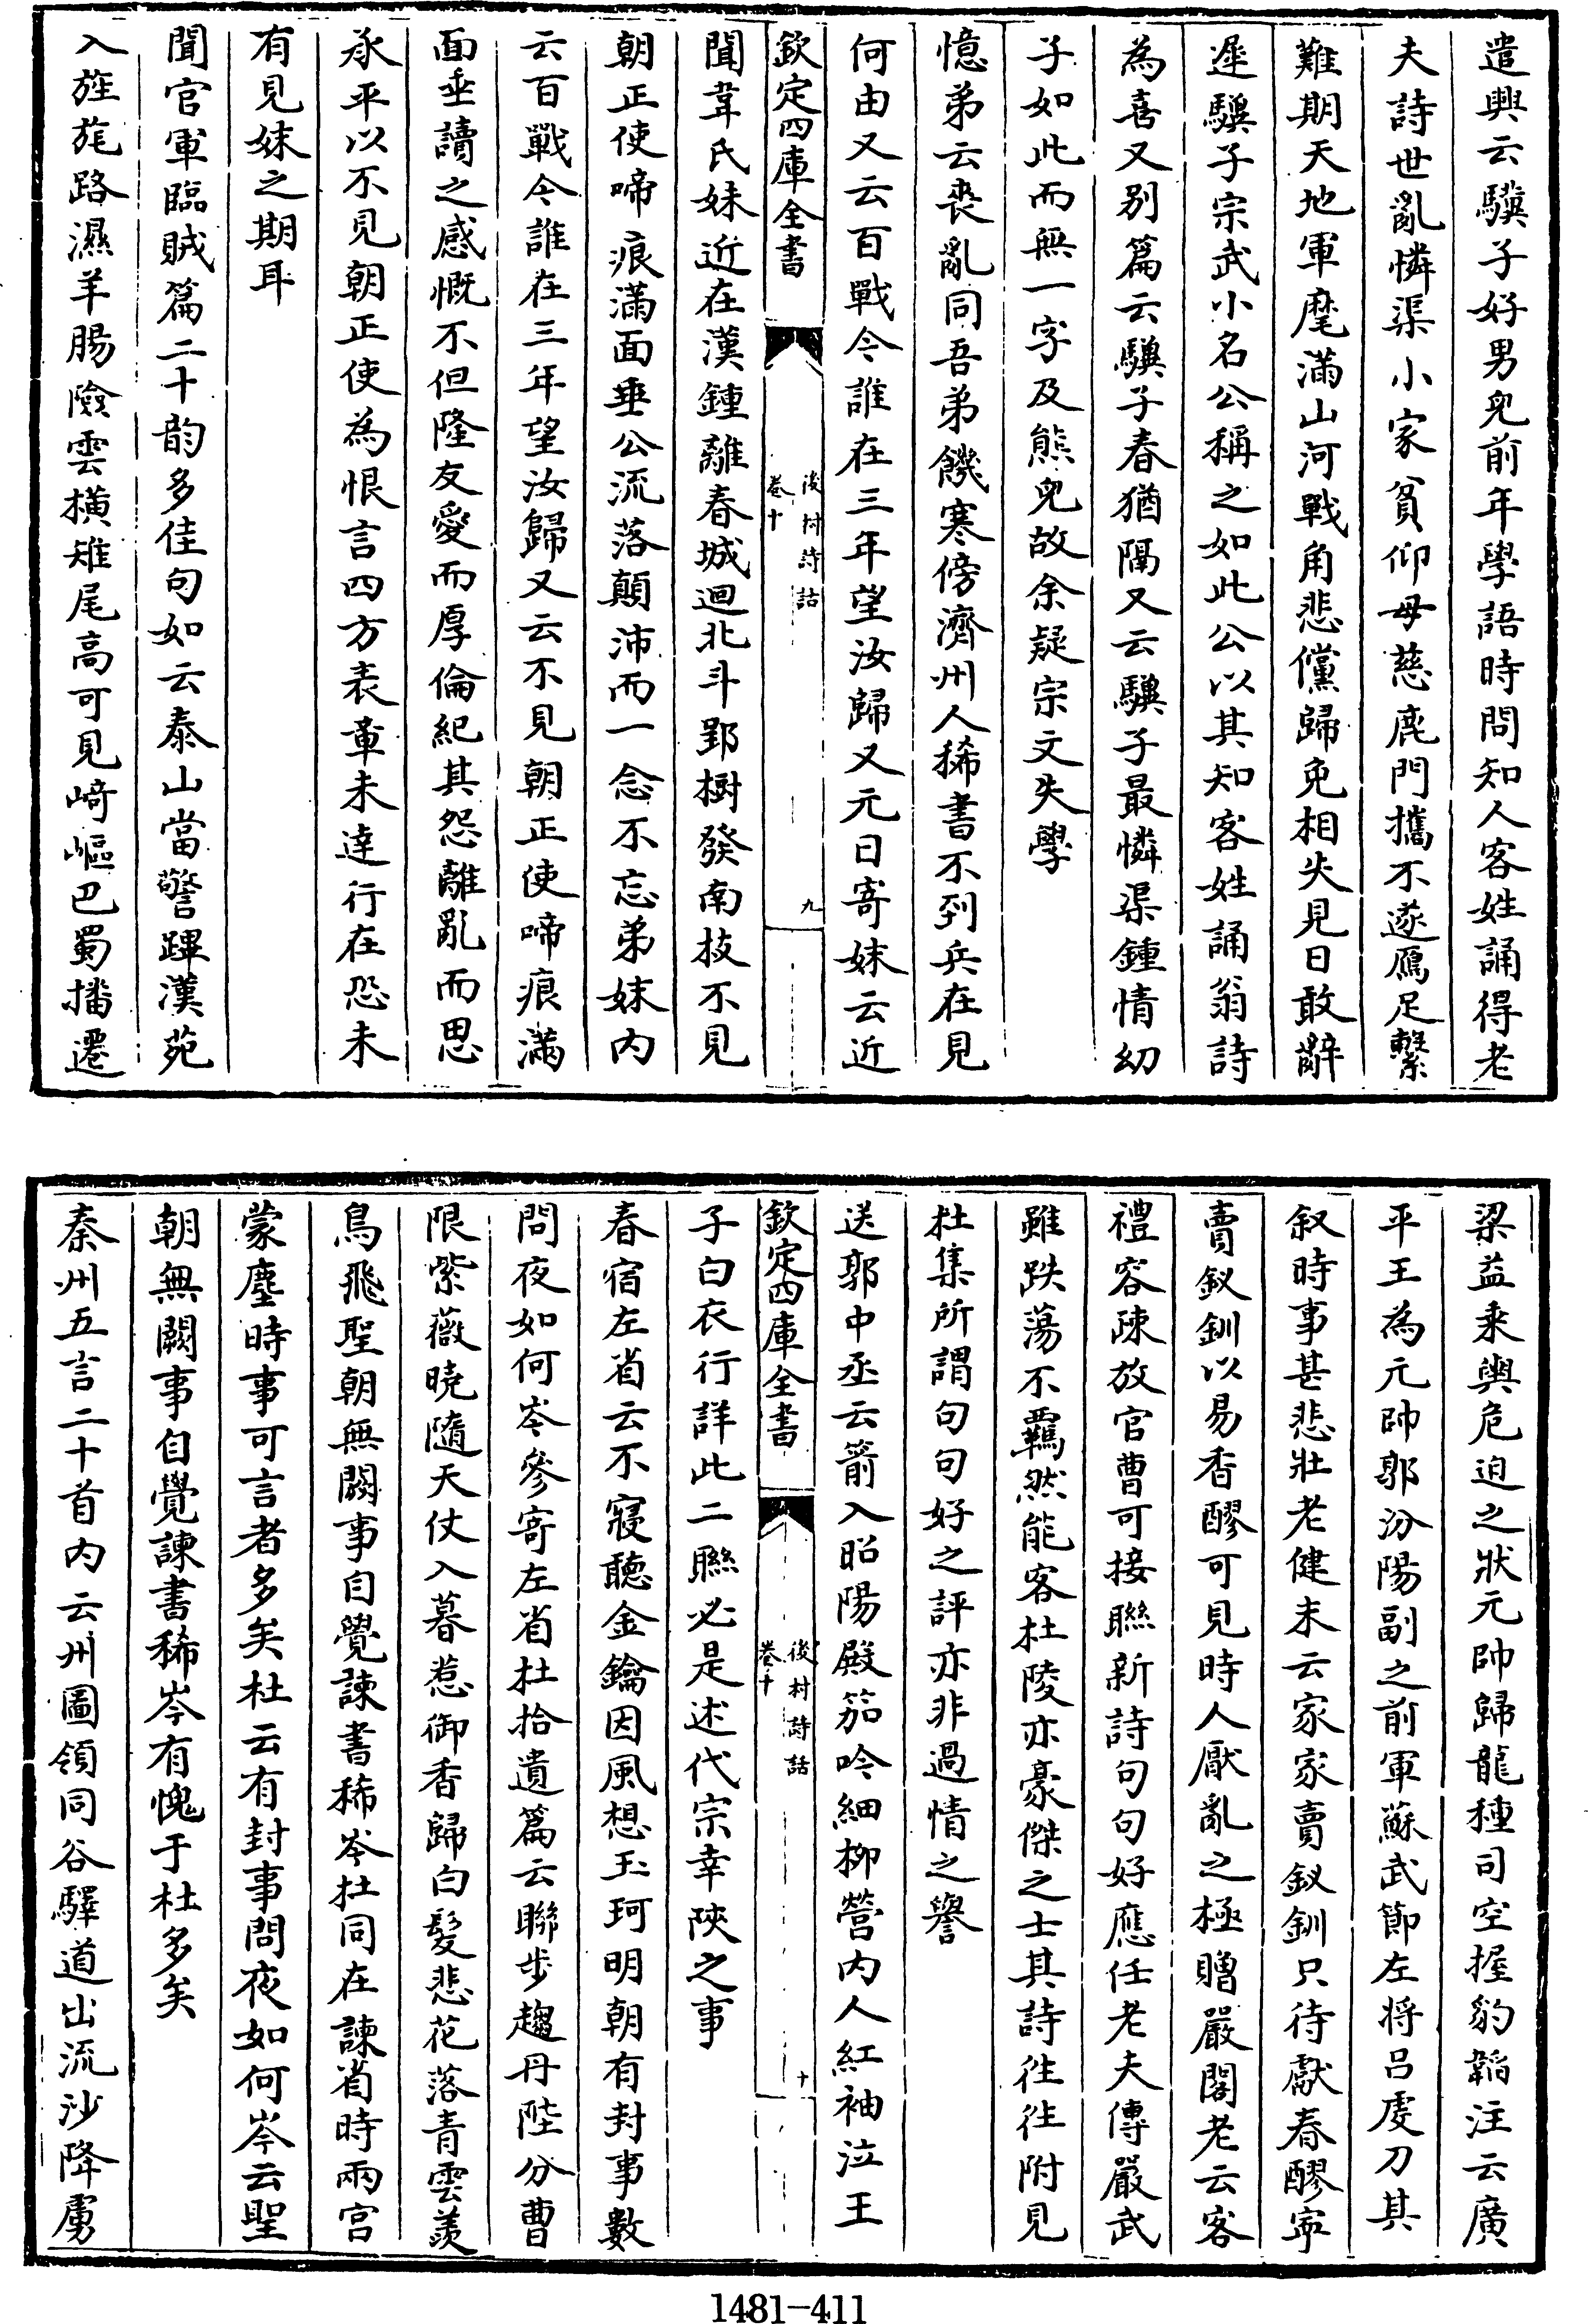 遣興云驥子好男兒前年學語時問知人客姓誦得老
夫詩世亂憐渠小家貧仰母慈鹿門攜不遂鴈足繫
難期天地軍麾滿山河戰角悲儻歸免相失見日敢辭
遲驥子宗武小名公稱之如此公以其知客姓誦翁詩
為喜又别篇云驥子春猶隔又云驥子最憐渠鍾情幼
子如此而無一字及熊兒故余疑宗文失學
憶弟云喪亂同吾弟饑寒傍濟州人稀書不到兵在見
何由又云百戰今誰在三年望汝歸又元日寄妹云近
欽定四庫全書
後村詩話
卷十
九
聞韋氏妹近在漢鍾離春城迴北斗郢樹發南枝不見
朝正使啼痕滿面垂公流落顛沛而一念不忘弟妹内
云百戰今誰在三年望汝歸又云不見朝正使啼痕滿
面垂讀之感慨不但隆友愛而厚倫紀其怨離亂而思
承平以不見朝正使為恨言四方表章未達行在恐未
有見妹之期耳
聞官軍臨賊篇二十韵多佳句如云泰山當警蹕漢苑
入旌旄路濕羊腸險雲横雉尾高可見崎嶇巴蜀播遷
梁益乘輿危迫之狀元帥歸龍種司空握豹韜注云廣
平王為元帥郭汾陽副之前軍蘇武節左将吕䖍刀其
叙時事甚悲壯老健末云家家賣釵釧只待獻春醪寧
賣釵釧以易香醪可見時人厭亂之極贈嚴閣老云客
禮容疎放官曹可接聯新詩句句好應任老夫傳嚴武
雖跌蕩不羈然能客杜陵亦豪傑之士其詩往往附見
杜集所謂句句好之評亦非過情之譽
送郭中丞云箭入昭陽殿笳吟細柳營内人紅袖泣王
欽定四庫全書
後村詩話
卷十
十
子白衣行詳此二聯必是述代宗幸陜之事
春宿左省云不寢聽金鑰因風想玉珂明朝有封事數
問夜如何岑參寄左省杜拾遺篇云聯步趨丹陛分曹
限紫薇曉隨天仗入暮惹御香歸白髮悲花落青雲羨
鳥飛聖朝無闕事自覺諫書稀岑杜同在諫省時兩宫
蒙塵時事可言者多矣杜云有封事問夜如何岑云聖
朝無闕事自覺諫書稀岑有愧于杜多矣
秦州五言二十首内云州圖領同谷驛道出流沙降虜
1481-411